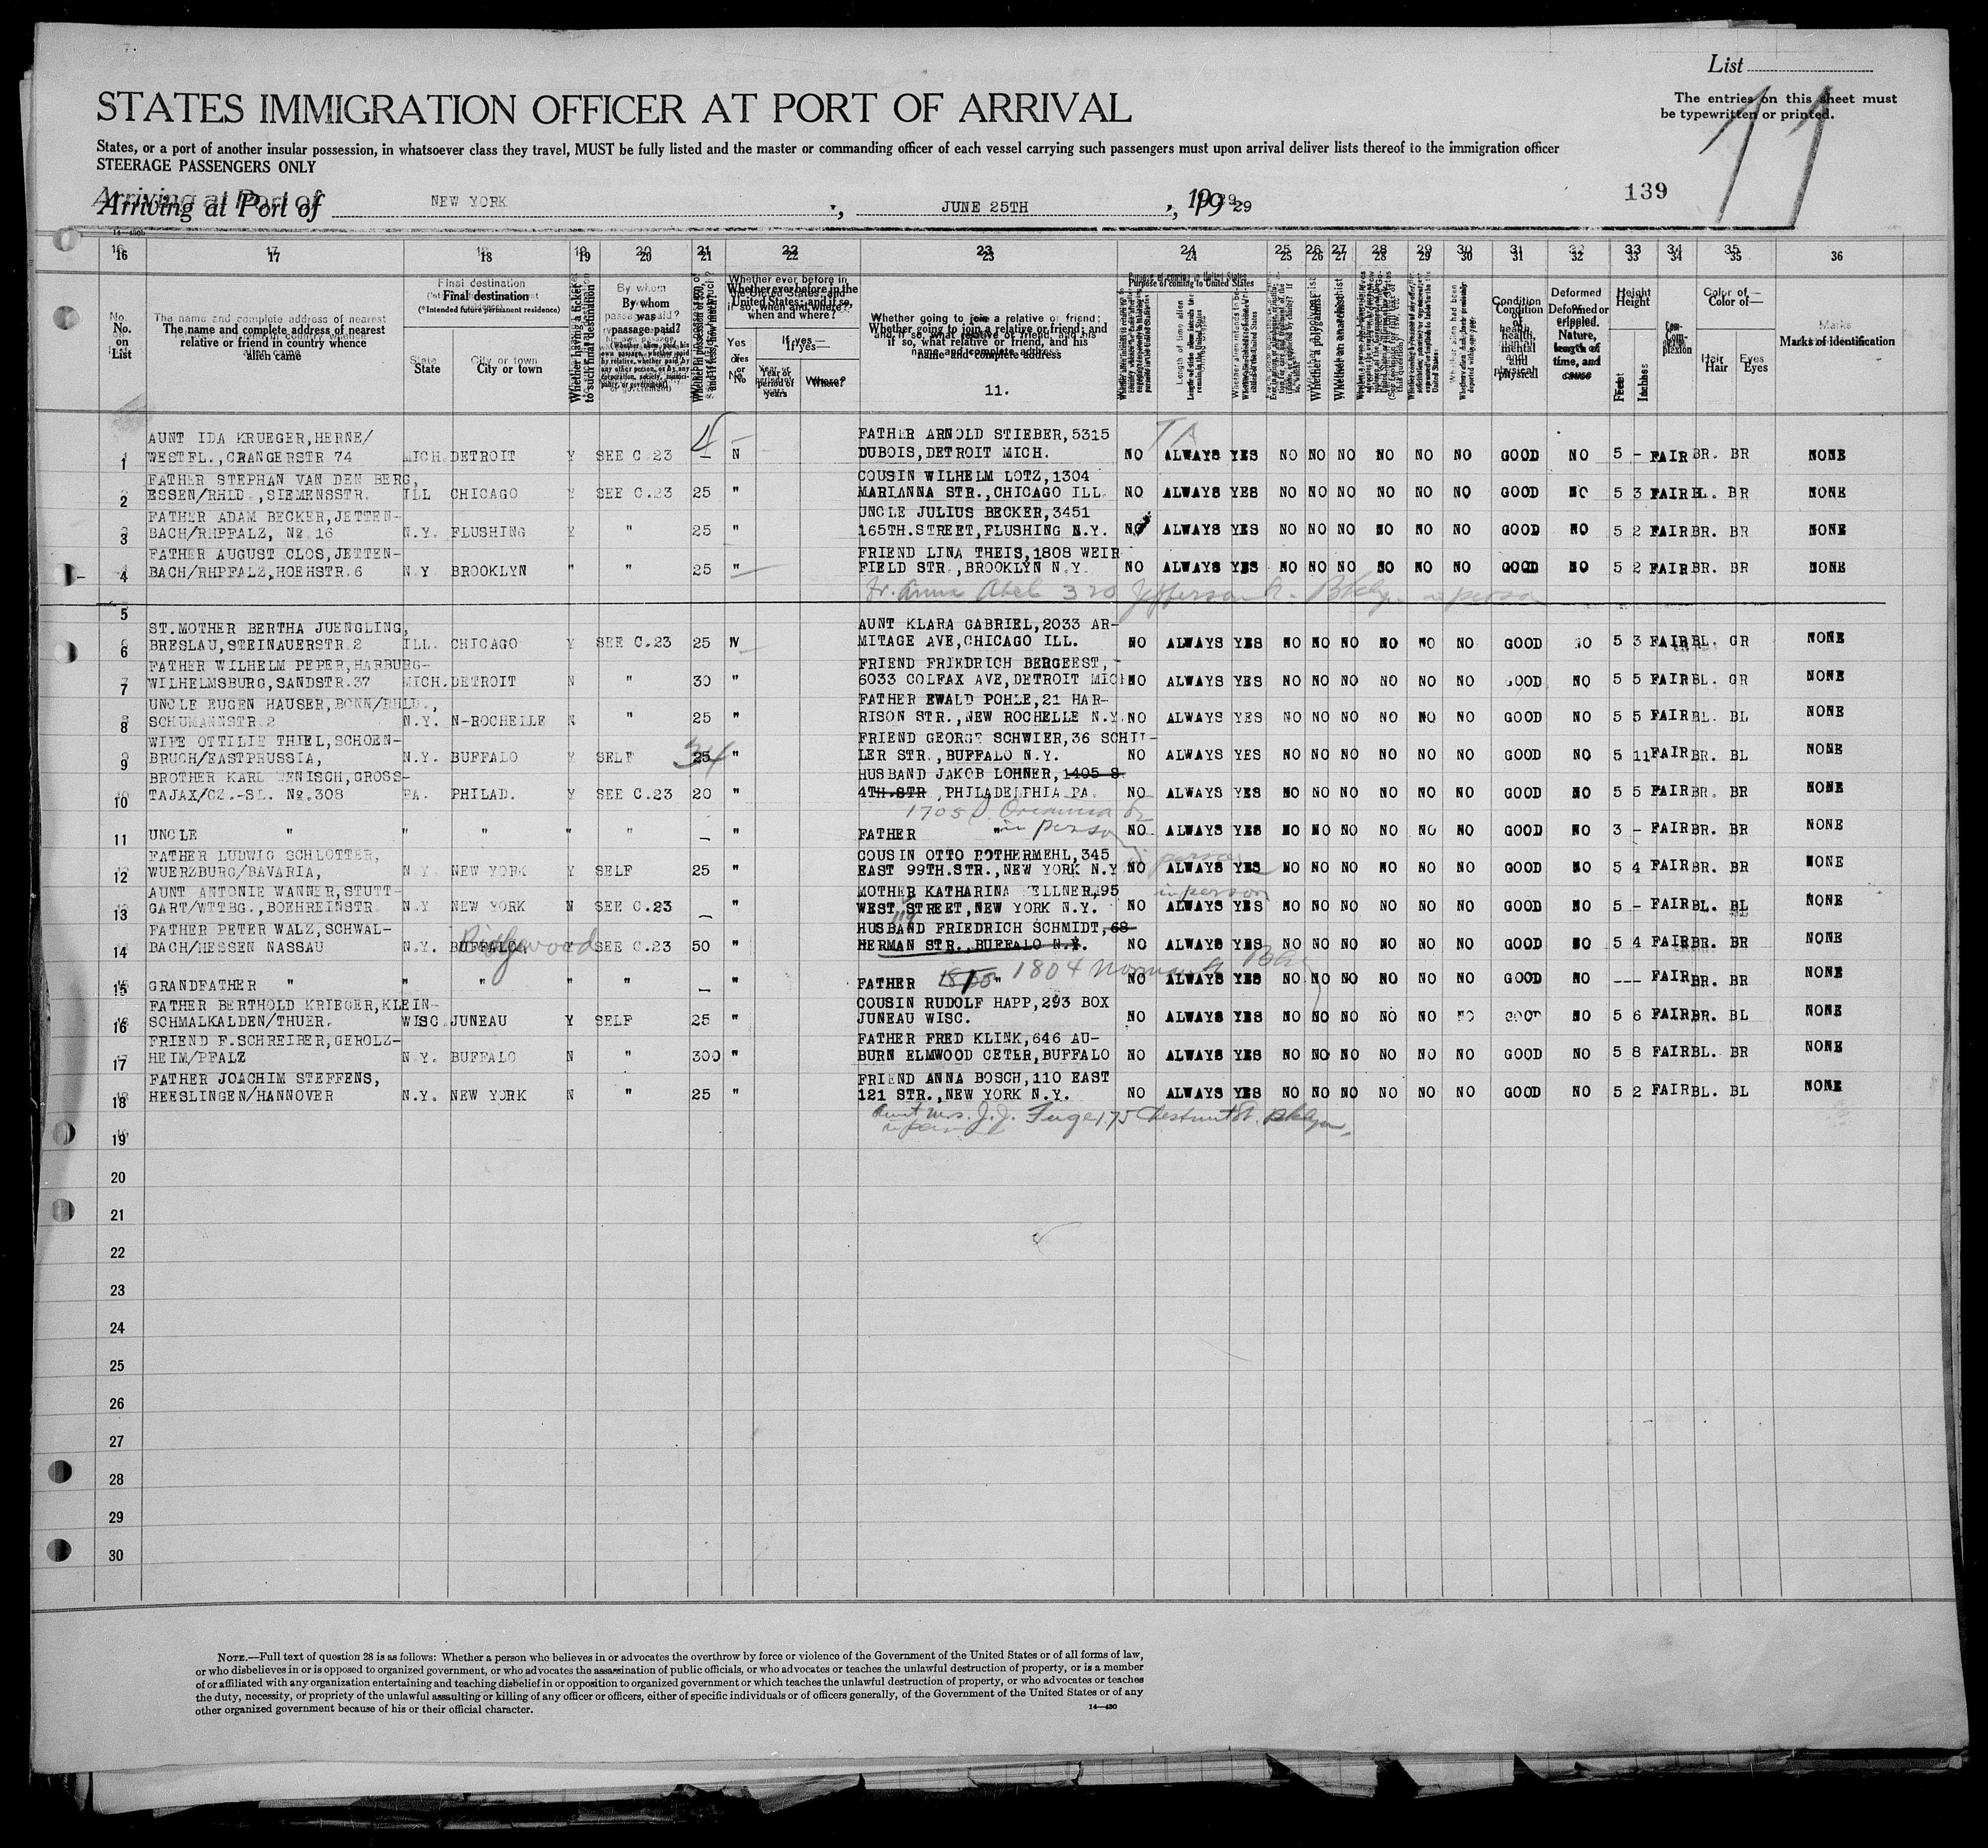 List
The entries on this sheet must
be typewritten or printed.
11
STATES IMMIGRATION OFFICER AT PORT OF ARRIVAL
States, or a port of another insular possession, in whatsoever class they travel, MUST be fully listed and the master or commanding officer of each vessel carrying such passengers must upon arrival deliver lists thereof to the immigration officer
STEERAGE PASSENGERS ONLY
Arriving at Port of NEW YORK, JUNE 25TH, 1929
139
16 17 18 19 20 21 22 23 24 25 26 27 28 29 30 31 32 33 34 35 36
No. on List
The name and complete address of nearest relative or friend in country whence alien came
Final destination
(*Intended future permanent residence)
State City or town
Whether having a ticket to such final destination
By whom was passage paid?
Whether ever before in the United States; and if so, when and where?
Yes or No
If yes—
Year or period of years
Where?
Whether going to join a relative or friend; and if so, what relative or friend, and his name and complete address
11.
Purpose of coming to United States
Whether a polygamist
Whether an anarchist
Condition of health, mental and physical
Deformed or crippled. Nature, length of time, and cause
Height
Feet Inches
Complexion
Color of—
Hair Eyes
Marks of identification
AUNT IDA KRUEGER, HERNE/ FATHER ARNOLD STIEBER, 5315
1 WESTFL., CRANGERSTR 74 MICH. DETROIT Y SEE C.23 — N DUBOIS, DETROIT MICH. NO ALWAYS YES NO NO NO NO NO NO GOOD NO 5 - FAIR BR. BR NONE
FATHER STEPHAN VAN DEN BERG, COUSIN WILHELM LOTZ, 1304
2 ESSEN/RHLD., SIEMENSSTR. ILL CHICAGO Y SEE C.23 25 " MARIANNA STR., CHICAGO ILL. NO ALWAYS YES NO NO NO NO NO NO GOOD NO 5 3 FAIR BL. BR NONE
FATHER ADAM BECKER, JETTEN- UNCLE JULIUS BECKER, 3451
3 BACH/RHPFALZ, No. 16 N.Y. FLUSHING Y " 25 " 165TH. STREET, FLUSHING N.Y. NO ALWAYS YES NO NO NO NO NO NO GOOD NO 5 2 FAIR BR. BR NONE
FATHER AUGUST CLOS, JETTEN- FRIEND LINA THEIS, 1808 WEIR
4 BACH/RHPFALZ, HOEHSTR. 6 N.Y. BROOKLYN " " 25 " FIELD STR., BROOKLYN N.Y. NO ALWAYS YES NO NO NO NO NO NO GOOD NO 5 2 FAIR BR. BR NONE
Anna Abel 320 Jefferson Bklyn in person
5
ST. MOTHER BERTHA JUENGLING, AUNT KLARA GABRIEL, 2033 AR-
6 BRESLAU, STEINAUERSTR. 2 ILL. CHICAGO Y SEE C.23 25 N MITAGE AVE, CHICAGO ILL. NO ALWAYS YES NO NO NO NO NO NO GOOD NO 5 3 FAIR BL. GR NONE
FATHER WILHELM PEPER, HARBURG- FRIEND FRIEDRICH BERGEEST,
7 WILHELMSBURG, SANDSTR. 37 MICH. DETROIT N " 30 " 6033 COLFAX AVE, DETROIT MICH NO ALWAYS YES NO NO NO NO NO NO GOOD NO 5 5 FAIR BL. GR NONE
UNCLE EUGEN HAUSER, BONN/RHLD., FATHER EWALD POHLE, 21 HAR-
8 SCHUMANNSTR. 2 N.Y. N-ROCHELLE N " 25 " RISON STR., NEW ROCHELLE N.Y. NO ALWAYS YES NO NO NO NO NO NO GOOD NO 5 5 FAIR BL. BL NONE
WIFE OTTILIE THIEL, SCHOEN- FRIEND GEORGE SCHWIER, 36 SCHIL-
9 BRUCH/EASTPRUSSIA, N.Y. BUFFALO Y SELF 25 34 " LER STR., BUFFALO N.Y. NO ALWAYS YES NO NO NO NO NO NO GOOD NO 5 11 FAIR BR. BL NONE
BROTHER KARL WENISCH, GROSS- HUSBAND JAKOB LOHNER, 1405 S
10 TAJAX/CZ.-SL. No. 308 PA. PHILAD. Y SEE C.23 20 " 4TH. STR., PHILADELPHIA PA. NO ALWAYS YES NO NO NO NO NO NO GOOD NO 5 5 FAIR BR. BR NONE
1705
11 UNCLE " " " " " — " FATHER " in person NO ALWAYS YES NO NO NO NO NO NO GOOD NO 3 - FAIR BR. BR NONE
FATHER LUDWIG SCHLOTTER, COUSIN OTTO ROTHERMEHL, 345 in person
12 WUERZBURG/BAVARIA, N.Y. NEW YORK Y SELF 25 " EAST 99TH. STR., NEW YORK N.Y. NO ALWAYS YES NO NO NO NO NO NO GOOD NO 5 4 FAIR BR. BR NONE
AUNT ANTONIE WANNER, STUTT- MOTHER KATHARINA KELLNER, 195 in person
13 GART/WTTBG., BOEHREINSTR. N.Y NEW YORK N SEE C.23 — " WEST STREET, NEW YORK N.Y. NO ALWAYS YES NO NO NO NO NO NO GOOD NO 5 - FAIR BL. BL NONE
FATHER PETER WALZ, SCHWAL- HUSBAND FRIEDRICH SCHMIDT, 68
14 BACH/HESSEN NASSAU N.Y. BUFFALO. Ridgewood Y SEE C.23 50 " HERMAN STR., BUFFALO N.Y. NO ALWAYS YES NO NO NO NO NO NO GOOD NO 5 4 FAIR BR. BR NONE
1804 Norman St Bkl
15 GRANDFATHER " " " " " — " FATHER " NO ALWAYS YES NO NO NO NO NO NO GOOD NO --- FAIR BR. BR NONE
FATHER BERTHOLD KRIEGER, KLEIN- COUSIN RUDOLF HAPP, 293 BOX
16 SCHMALKALDEN/THUER. WISC. JUNEAU Y SELF 25 " JUNEAU WISC. NO ALWAYS YES NO NO NO NO NO NO GOOD NO 5 6 FAIR BR. BL NONE
FRIEND F. SCHREIBER, GEROLZ- FATHER FRED KLINK, 646 AU-
17 HEIM/PFALZ N.Y. BUFFALO N " 300 " BURN ELMWOOD CETER, BUFFALO NO ALWAYS YES NO NO NO NO NO NO GOOD NO 5 8 FAIR BL. BR NONE
FATHER JOACHIM STEFFENS, FRIEND ANNA BOSCH, 110 EAST
18 HEESLINGEN/HANNOVER N.Y. NEW YORK N " 25 " 121 STR., NEW YORK N.Y. NO ALWAYS YES NO NO NO NO NO NO GOOD NO 5 2 FAIR BL. BL NONE
Aunt Mrs. J. J. Fuge 175 Chestnut St. Bklyn,
19
20
21
22
23
24
25
26
27
28
29
30
NOTE.—Full text of question 28 is as follows: Whether a person who believes in or advocates the overthrow by force or violence of the Government of the United States or of all forms of law,
or who disbelieves in or is opposed to organized government, or who advocates the assassination of public officials, or who advocates or teaches the unlawful destruction of property, or is a member
of or affiliated with any organization entertaining and teaching disbelief in or opposition to organized government or which teaches the unlawful destruction of property, or who advocates or teaches
the duty, necessity, or propriety of the unlawful assaulting or killing of any officer or officers, either of specific individuals or of officers generally, of the Government of the United States or of any
other organized government because of his or their official character.
14—430